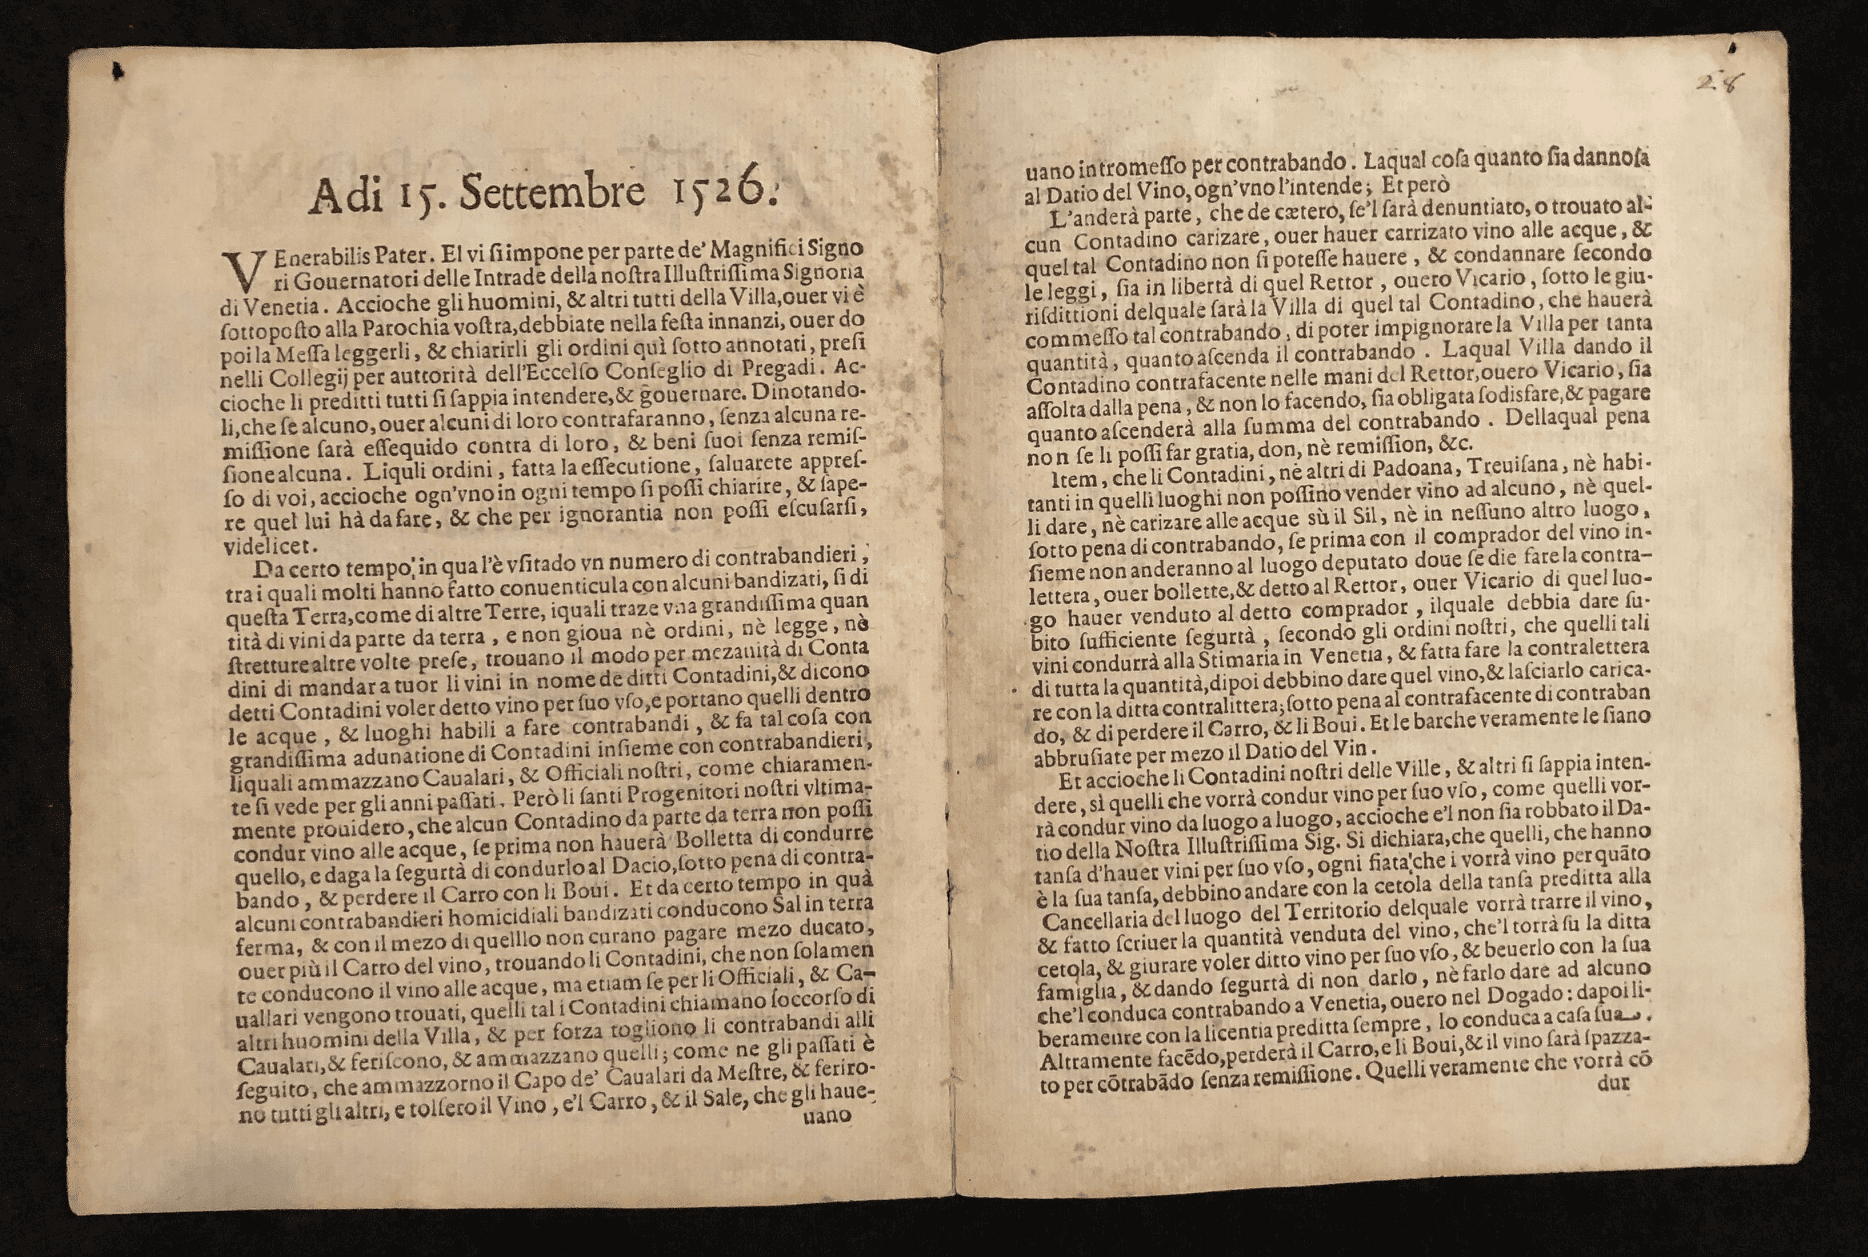 Adi 15. Settembre 1526.
VEnerabilis Pater. El vi ſi impone per parte de' Magnifici Signo
ri Gouernatori delle Intrade della noſtra Illuſtriſſima Signoria
di Venetia. Accioche gli huomini, & altri tutti della Villa, ouer vi è
ſottopoſto alla Parochia voſtra, debbiate nella feſta innanzi, ouer do
poi la Meſſa leggerli, & chiarirli gli ordini quì ſotto annotati, preſi
nelli Collegij per auttorità dell'Eccelſo Conſeglio di Pregadi. Ac-
cioche li preditti tutti ſi ſappia intendere, & gouernare. Dinotando-
li, che ſe alcuno, ouer alcuni di loro contrafaranno, ſenza alcuna re-
miſſione ſarà eſſequido contra di loro, & beni ſuoi ſenza remiſ-
ſione alcuna. Liquli ordini, fatta la eſſecutione, ſaluarete appreſ-
ſo di voi, accioche ogn'vno in ogni tempo ſi poſſi chiarire, & ſape-
re quel lui hà da fare, & che per ignorantia non poſſi eſcuſarſi,
videlicet.
Da certo tempo in qua l'è vſitado vn numero di contrabandieri,
tra i quali molti hanno fatto conuenticula con alcuni bandizati, ſi di
queſta Terra, come di altre Terre, iquali traze vna grandiſſima quan
tità di vini da parte da terra, e non gioua nè ordini, nè legge, nè
ſtretture altre volte preſe, trouano il modo per mezanità di Conta
dini di mandar a tuor li vini in nome de ditti Contadini, & dicono
detti Contadini voler detto vino per ſuo vſo, e portano quelli dentro
le acque, & luoghi habili a fare contrabandi, & fa tal coſa con
grandiſſima adunatione di Contadini inſieme con contrabandieri,
liquali ammazzano Caualari, & Officiali noſtri, come chiaramen-
te ſi vede per gli anni paſſati. Però li ſanti Progenitori noſtri vltima-
mente prouidero, che alcun Contadino da parte da terra non poſſi
condur vino alle acque, ſe prima non hauerà Bolletta di condurre
quello, e daga la ſegurtà di condurlo al Dacio, ſotto pena di contra-
bando, & perdere il Carro con li Boui. Et da certo tempo in quà
alcuni contrabandieri homicidiali bandizati conducono Sal in terra
ferma, & con il mezo di quelllo non curano pagare mezo ducato,
ouer più il Carro del vino, trouando li Contadini, che non ſolamen
te conducono il vino alle acque, ma etiam ſe per li Officiali, & Ca-
uallari vengono trouati, quelli tal i Contadini chiamano ſoccorſo di
altri huomini della Villa, & per forza togliono li contrabandi alli
Caualari, & feriſcono, & ammazzano quelli; come ne gli paſſati è
ſeguito, che ammazzorno il Capo de' Caualari da Meſtre, & feriro-
no tutti gli altri, e tolſero il Vino, e'l Carro, & il Sale, che gli haue-
uano
28
uano intromeſſo per contrabando. Laqual coſa quanto ſia dannoſa
al Datio del Vino, ogn'vno l'intende; Et però
L'anderà parte, che de cætero, ſe'l ſarà denuntiato, o trouato al-
cun Contadino carizare, ouer hauer carrizato vino alle acque, &
quel tal Contadino non ſi poteſſe hauere, & condannare ſecondo
le leggi, ſia in libertà di quel Rettor, ouero Vicario, ſotto le giu-
riſdittioni delquale ſarà la Villa di quel tal Contadino, che hauerà
commeſſo tal contrabando, di poter impignorare la Villa per tanta
quantità, quanto aſcenda il contrabando. Laqual Villa dando il
Contadino contrafacente nelle mani del Rettor, ouero Vicario, ſia
aſſolta dalla pena, & non lo facendo, ſia obligata ſodisfare, & pagare
quanto aſcenderà alla ſumma del contrabando. Dellaqual pena
non ſe li poſſi far gratia, don, nè remiſſion, &c.
Item, che li Contadini, nè altri di Padoana, Treuiſana, nè habi-
tanti in quelli luoghi non poſſino vender vino ad alcuno, nè quel-
li dare, nè carizare alle acque sù il Sil, nè in neſſuno altro luogo,
ſotto pena di contrabando, ſe prima con il comprador del vino in-
ſieme non anderanno al luogo deputato doue ſe die fare la contra-
lettera, ouer bollette, & detto al Rettor, ouer Vicario di quel luo-
go hauer venduto al detto comprador, ilquale debbia dare ſu-
bito ſufficiente ſegurtà, ſecondo gli ordini noſtri, che quelli tali
vini condurrà alla Stimaria in Venetia, & fatta fare la contralettera
di tutta la quantità, dipoi debbino dare quel vino, & laſciarlo carica-
re con la ditta contralittera; ſotto pena al contrafacente di contraban
do, & di perdere il Carro, & li Boui. Et le barche veramente le ſiano
abbruſiate per mezo il Datio del Vin.
Et accioche li Contadini noſtri delle Ville, & altri ſi ſappia inten-
dere, sì quelli che vorrà condur vino per ſuo vſo, come quelli vor-
rà condur vino da luogo a luogo, accioche e'l non ſia robbato il Da-
tio della Noſtra Illuſtriſſima Sig. Si dichiara, che quelli, che hanno
tanſa d'hauer vini per ſuo vſo, ogni fiata che i vorrà vino per quāto
è la ſua tanſa, debbino andare con la cetola della tanſa preditta alla
Cancellaria del luogo del Territorio delquale vorrà trarre il vino,
& fatto ſcriuer la quantità venduta del vino, che'l torrà ſu la ditta
cetola, & giurare voler ditto vino per ſuo vſo, & beuerlo con la ſua
famiglia, & dando ſegurtà di non darlo, nè farlo dare ad alcuno
che'l conduca contrabando a Venetia, ouero nel Dogado: dapoi li-
beramente con la licentia preditta ſempre, lo conduca a caſa ſua.
Altramente facēdo, perderà il Carro, e li Boui, & il vino ſarà ſpazza-
to per cōtrabādo ſenza remiſſione. Quelli veramente che vorrà cō
dur